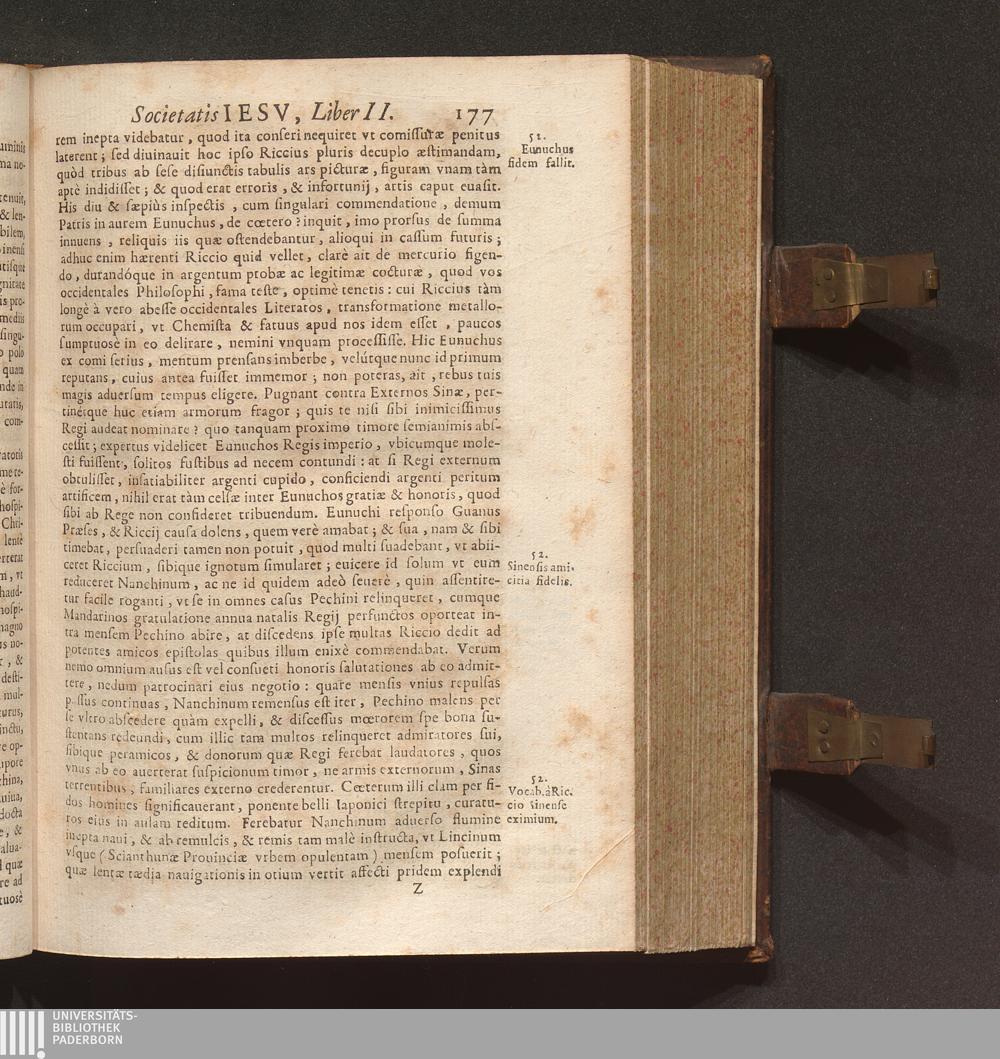 Societatis IESV, Liber II. 177
rem inepta videbatur, quod ita conſeri nequiret vt comiſſuræ penitus
laterent; ſed diuinauit hoc ipſo Riccius pluris decuplo æſtimandam,
quòd tribus ab ſeſe diſiunctis tabulis ars picturæ, figuram vnam tàm
aptè indidiſſet; & quod erat erroris, & infortunij, artis caput euaſit.
His diu & ſæpiùs inſpectis, cum ſingulari commendatione, demum
Patris in aurem Eunuchus, de cœtero? inquit, imo prorſus de ſumma
innuens, reliquis iis quæ oſtendebantur, alioqui in caſſum futuris;
adhuc enim hærenti Riccio quid vellet, clarè ait de mercurio figen-
do, durandóque in argentum probæ ac legitimæ cocturæ, quod vos
occidentales Philoſophi, fama teſte, optimè tenetis: cui Riccius tàm
longè à vero abeſſe occidentales Literatos, transformatione metallo-
rum occupari, vt Chemiſta & fatuus apud nos idem eſſet, paucos
ſumptuosè in eo delirare, nemini vnquam proceſſiſſe. Hic Eunuchus
ex comi ſerius, mentum prenſans imberbe, velútque nunc id primum
reputans, cuius antea fuiſſet immemor; non poteras, ait, rebus tuis
magis aduerſum tempus eligere. Pugnant contra Externos Sinæ, per-
tinétque huc etiam armorum fragor; quis te niſi ſibi inimiciſſimus
Regi audeat nominare? quo tanquam proximo timore ſemianimis abſ-
ceſſit; expertus videlicet Eunuchos Regis imperio, vbicumque mole-
ſti fuiſſent, ſolitos fuſtibus ad necem contundi: at ſi Regi externum
obtuliſſet, inſatiabiliter argenti cupido, conficiendi argenti peritum
artificem, nihil erat tàm celſæ inter Eunuchos gratiæ & honoris, quod
ſibi ab Rege non confideret tribuendum. Eunuchi reſponſo Guanus
Præſes, & Riccij cauſa dolens, quem verè amabat; & ſua, nam & ſibi
timebat, perſuaderi tamen non potuit, quod multi ſuadebant, vt abii-
ceret Riccium, ſibique ignotum ſimularet; euicere id ſolum vt eum
reduceret Nanchinum, ac ne id quidem adeò ſeuerè, quin aſſentire-
tur facile roganti, vt ſe in omnes caſus Pechini relinqueret, cumque
Mandarinos gratulatione annua natalis Regij perfunctos oporteat in-
tra menſem Pechino abire, at diſcedens ipſe multas Riccio dedit ad
potentes amicos epiſtolas quibus illum enixè commendabat. Verum
nemo omnium auſus eſt vel conſueti honoris ſalutationes ab eo admit-
tere, nedum patrocinari eius negotio: quare menſis vnius repulſas
paſſus continuas, Nanchinum remenſus eſt iter, Pechino malens per
ſe vltro abſcedere quàm expelli, & diſceſſus mœrorem ſpe bona ſu-
ſtentans redeundi, cum illic tam multos relinqueret admiratores ſui,
ſibique peramicos, & donorum quæ Regi ferebat laudatores, quos
vnus ab eo auerterat ſuſpicionum timor, ne armis externorum, Sinas
terrentibus, familiares externo crederentur. Cœterum illi clam per fi-
dos homines ſignificauerant, ponente belli Iaponici ſtrepitu, curatu-
ros eius in aulam reditum. Ferebatur Nanchinum aduerſo flumine
inepta naui, & ab remulcis, & remis tam malè inſtructa, vt Lincinum
vſque (Scianthunæ Prouinciæ vrbem opulentam) menſem poſuerit;
quæ lentæ tædia nauigationis in otium vertit affecti pridem explendi
Z
51.
Eunuchus
fidem fallit.
52.
Sinenſis ami-
citia fidelis.
52.
Vocab. à Ric.
cio Sinenſe
eximium.
UNIVERSITÄTS-
BIBLIOTHEK
PADERBORN